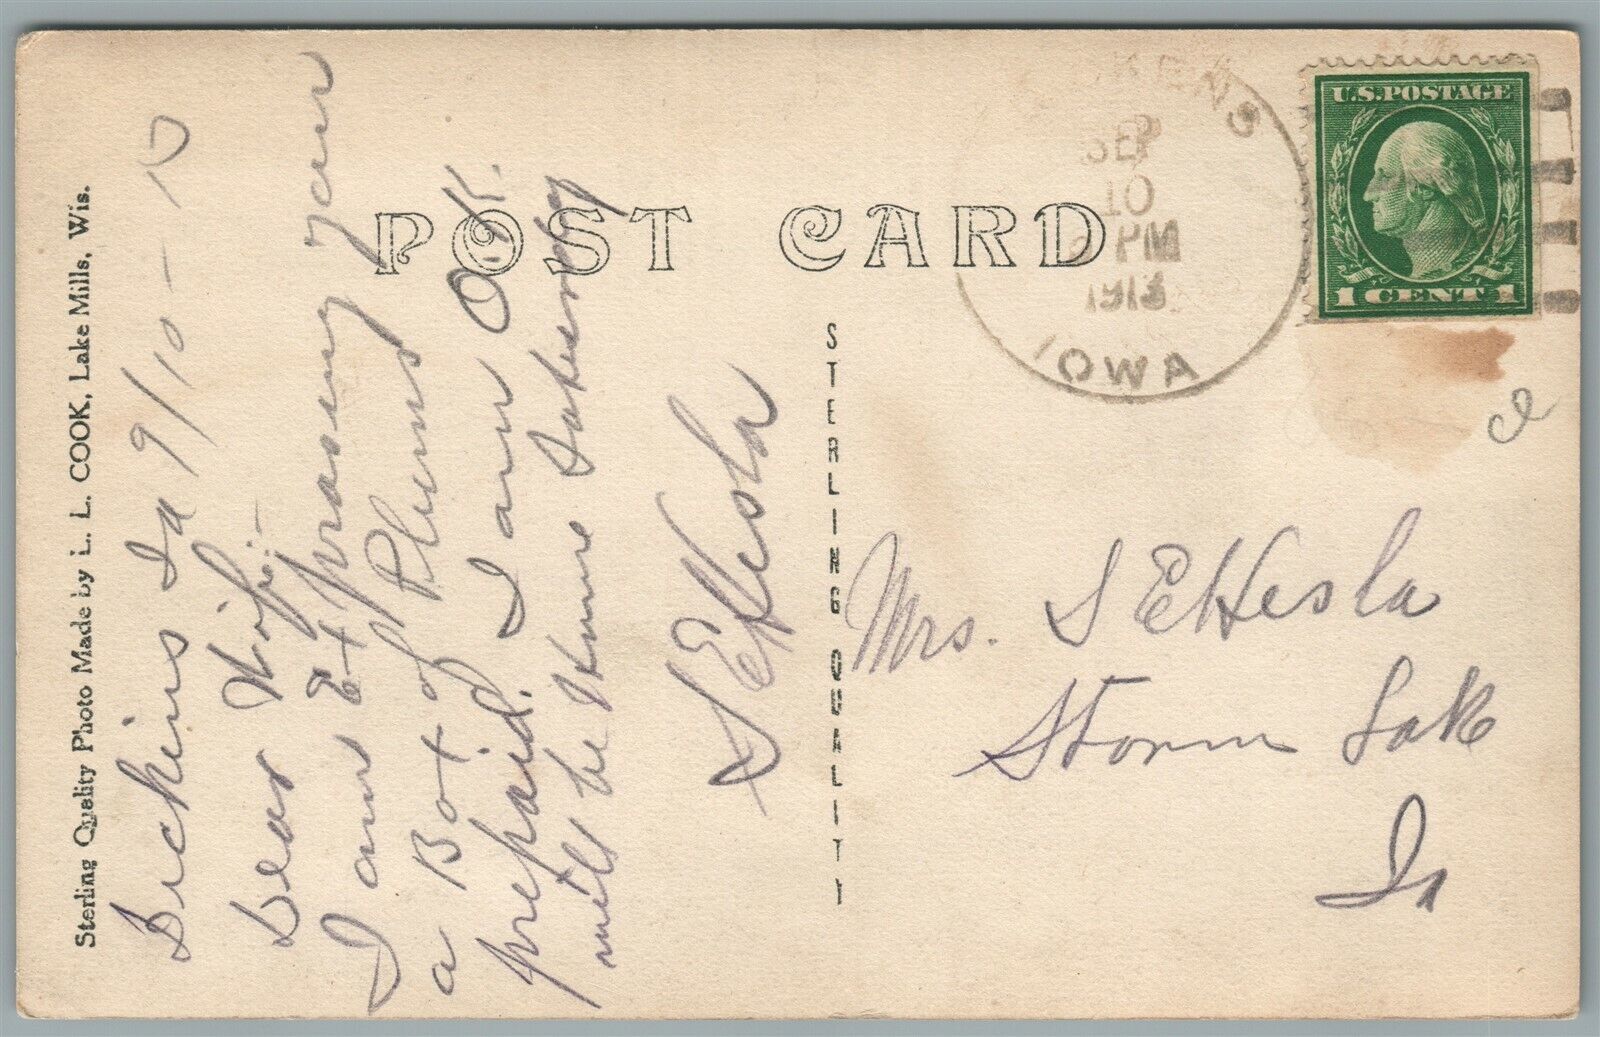 Sterling Quality Photo Made by L. L. COOK, Lake Mills, Wis.
Dickins Ia 9/10-13
Dear Wife:-
I am Exprasing your
a Box of Plums
prepaid. I am O.K.
will be Home Saturday
S E Hesla
POST CARD
STERLING QUALITY
KENS
SEP
10
PM
1913
IOWA
U.S.POSTAGE
1 CENT 1
Mrs. S E Hesla
Storm Lake
Ia